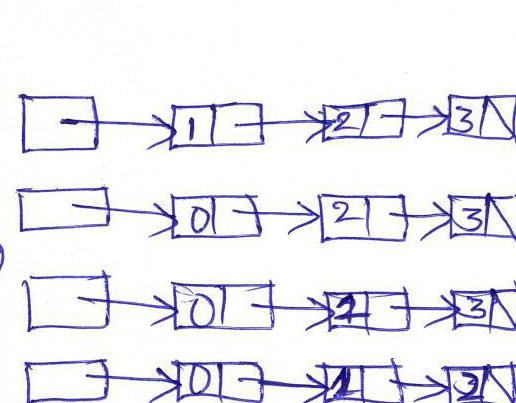 1 2 3
0 2 3
0 1 3
0 1 2